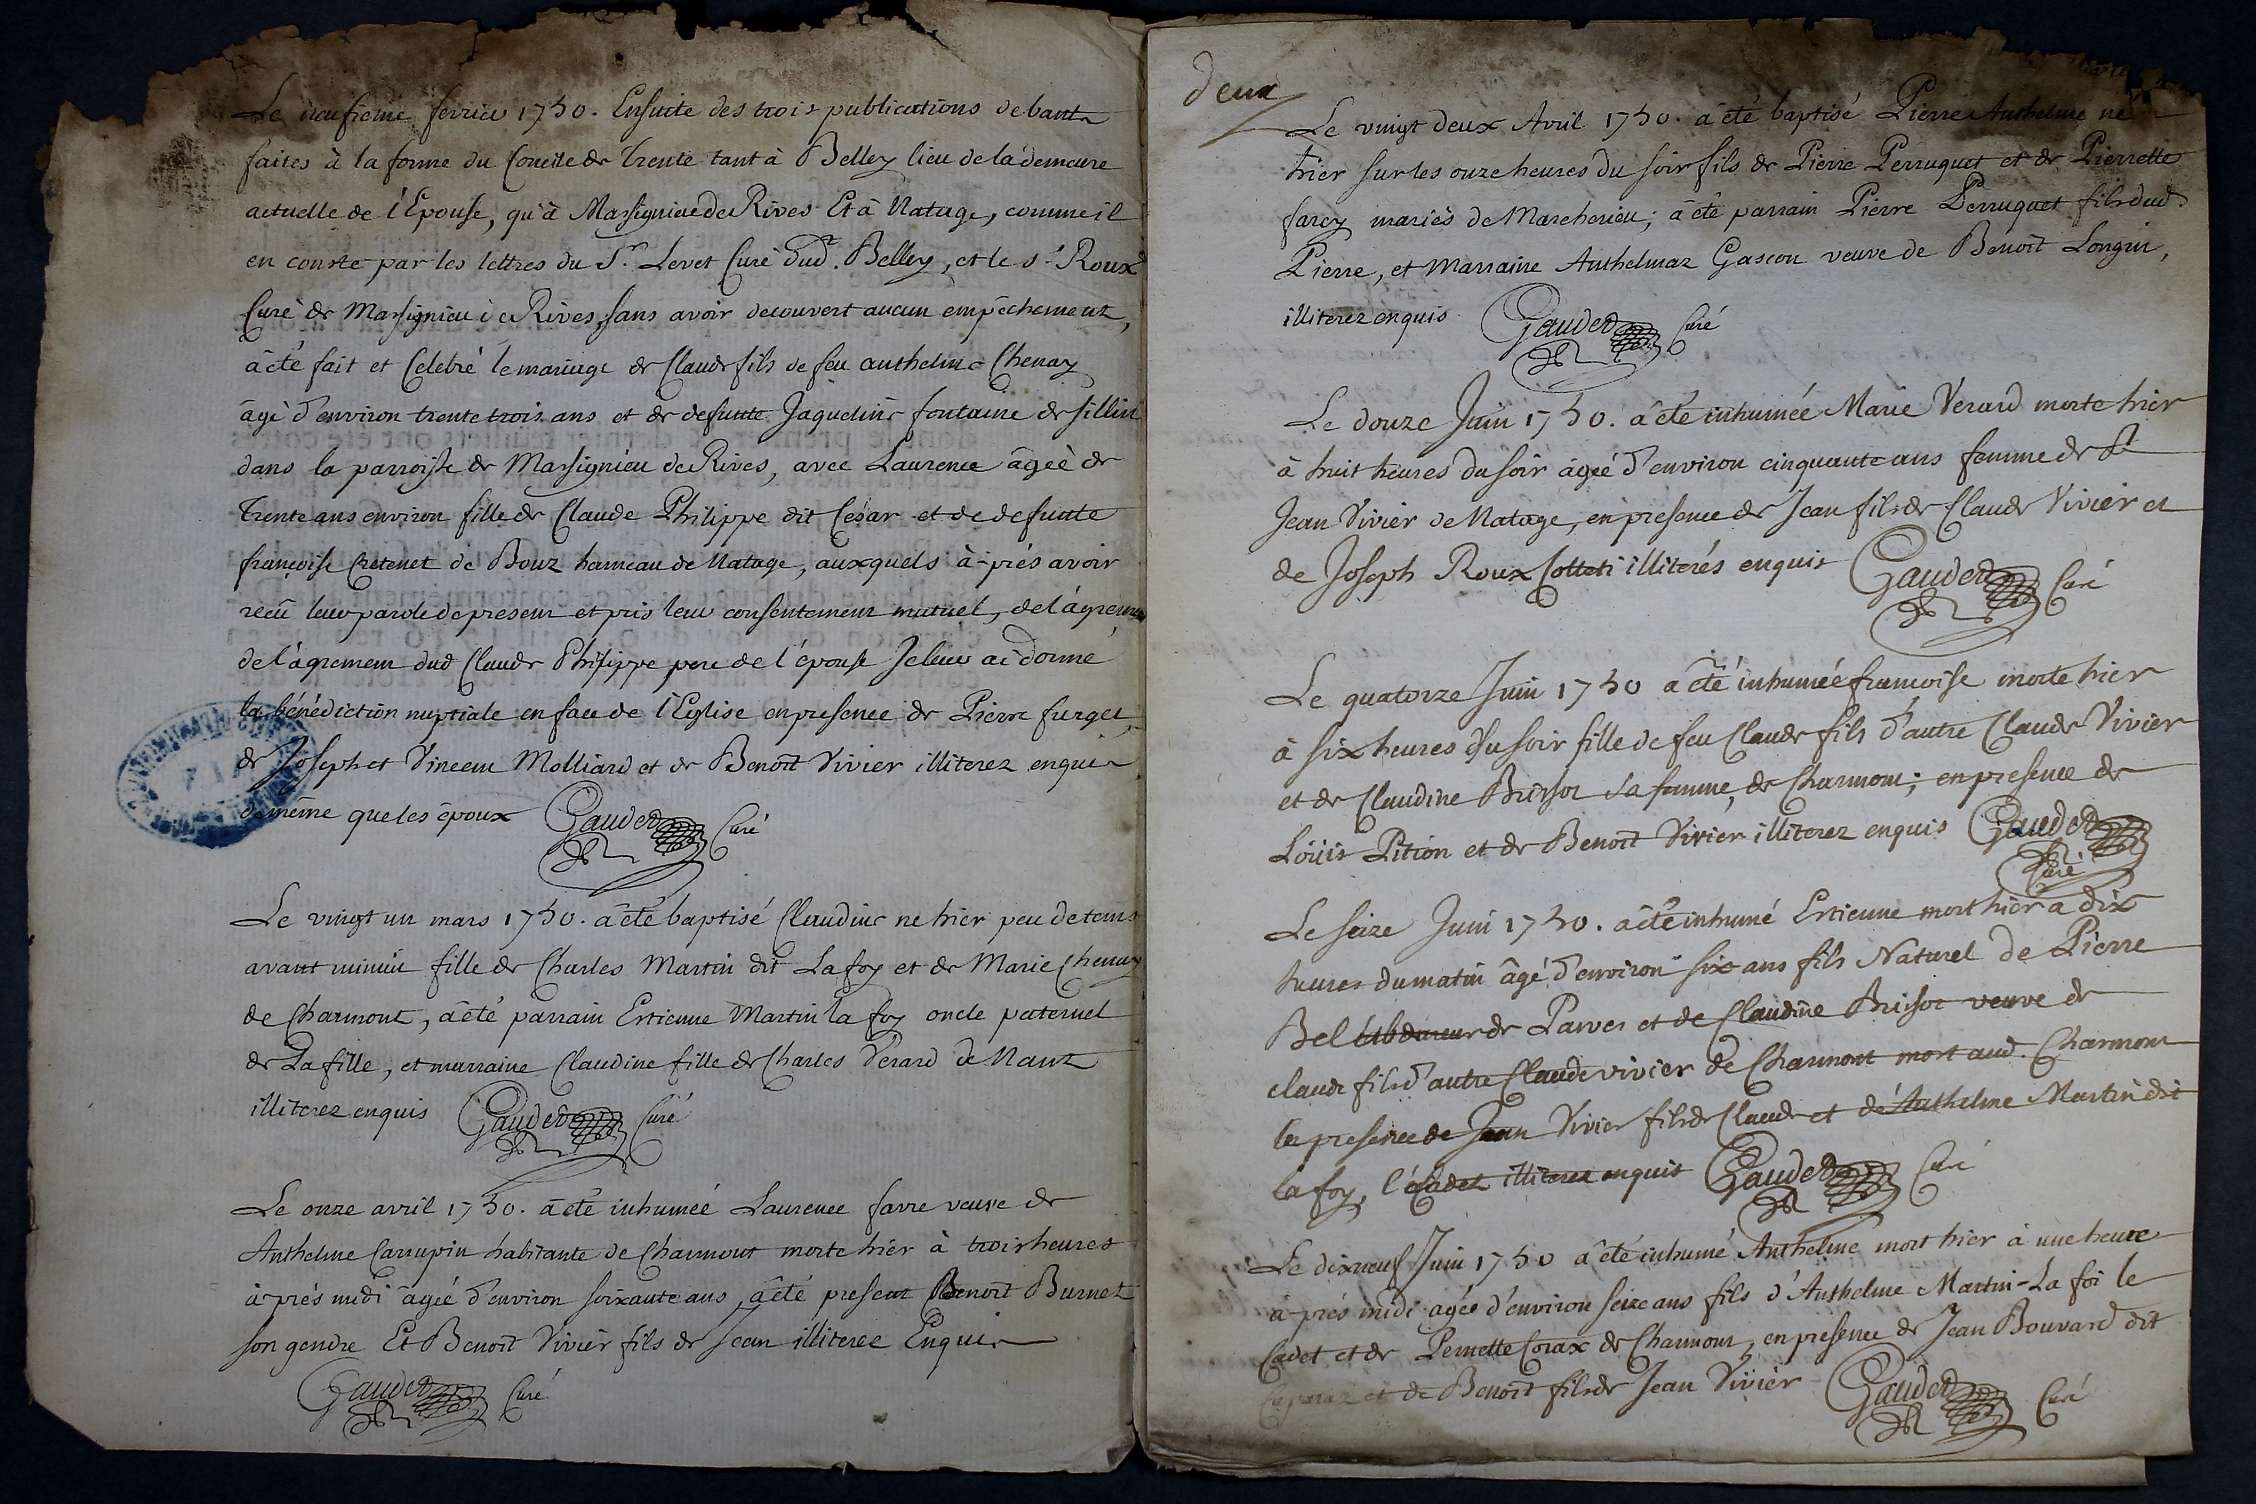 Le neufieme fevrier 1750. Ensuite des trois publications de bants
faites à la forme du Concile de Trente tant à Belley lieu de la demeure
actuelle de l'Epouse, qu'à Marsignieu de Rives Et à Natage, comme il
en conste par les lettres du Sr. Levet Curé dud. Belley, et le Sr Roux
Curé de Marsignieu de Rives, sans avoir decouvert aucun empêchement,
à été fait et Celebré le mariage de Claude fils de feu anthelme Chenay
âgé d'environ trente trois ans et de defunte Jaqueline fontaine de sillin
dans la parroisse de Marsignieu de Rives, avec Laurence âgéé de
Trente ans environ fille de Claude Philippe dit Cesar et de defunte
françoise Cretenet de Bouz hameau de Natage, auxquels à-prés avoir
recû leur parole de present et pris leur consentement mutuel, de l'ágrement
de l'ágrement dud Claude Philippe pere de l'épouse Je leur ai donné
la bénédiction nuptiale en face de l'Eglise en presence de Pierre furget,
de Joseph et Vincent Molliard et de Benoît Vivier illiterez enquis
de même que les époux Gaudet Curé
Le vingt un mars 1750. à été baptisé Claudine ne hier peu de tems
avant minuit fille de Charles Martin dit Lafoy et de Marie Chenay
de Charmont, à été parrain Estienne Martin la foy oncle paternel
de La fille, et marraine Claudine fille de Charles Verard de Nant
illiterez enquis Gaudet Curé
Le onze avril 1750. à été inhuméé Laurence favre veuve de
Anthelme Carrupin habitante de Charmont morte hier à trois heures
à-prés midi âgéé d'environ soixante ans, à été present Benoît Burnet
son gendre Et Benoît Vivier fils de Jean illiterez Enquis
Gaudet Curé
deux
Le vingt deux Avril 1750. à été baptisé Pierre Anthelme né
hier sur les onze heures du soir fils de Pierre Perruquet et de Pierrette
farcy mariés de Marcherieu; à été parrain Pierre Perruquet fils dud.
Pierre, et Marraine Anthelmaz Gascon veuve de Benoît Longin,
illiterez enquis Gaudet Curé
Le douze Juin 1750. à été inhuméé Marie Verard morte hier
à huit heures du soir âgéé d'environ cinquante ans femme de
Jean Vivier de Natage, en presence de Jean fils de Claude Vivier et
de Joseph Roux Colleti illiterés enquis Gaudet Curé
Le quatorze Juin 1750 a été inhuméé françoise morte hier
à six heures du soir fille de feu Claude fils d'autre Claude Vivier
et de Claudine Brissot sa femme, de Charmont; en presence de
Loüis Pition et de Benoît Vivier illiterez enquis Gaudet
Curé
Le seize Juin 1750. à été inhumé Estienne mort hier a dix
heures du matin âgé d'environ six ans fils Naturel de Pierre
Bel laboureur de Parves et de Claudine Brissot veuve de
claude fils d'autre Claude vivier de Charmont mort aud. Charmont
en presence de Jean Vivier fils de Claude et dé Anthelme Martin dit
la foy, l'écadet illiterez enquis Gaudet Curé
Le dixneuf Juin 1750 à été inhumé Anthelme mort hier à une heure
à-prés midi agée d'environ seize ans fils d'Anthelme Martin-La foi le
Cadet et de Pernette Corax de Charmont, en presence de Jean Bouvard dit
et de Benoît fils de Jean Vivier Gaudet Curé